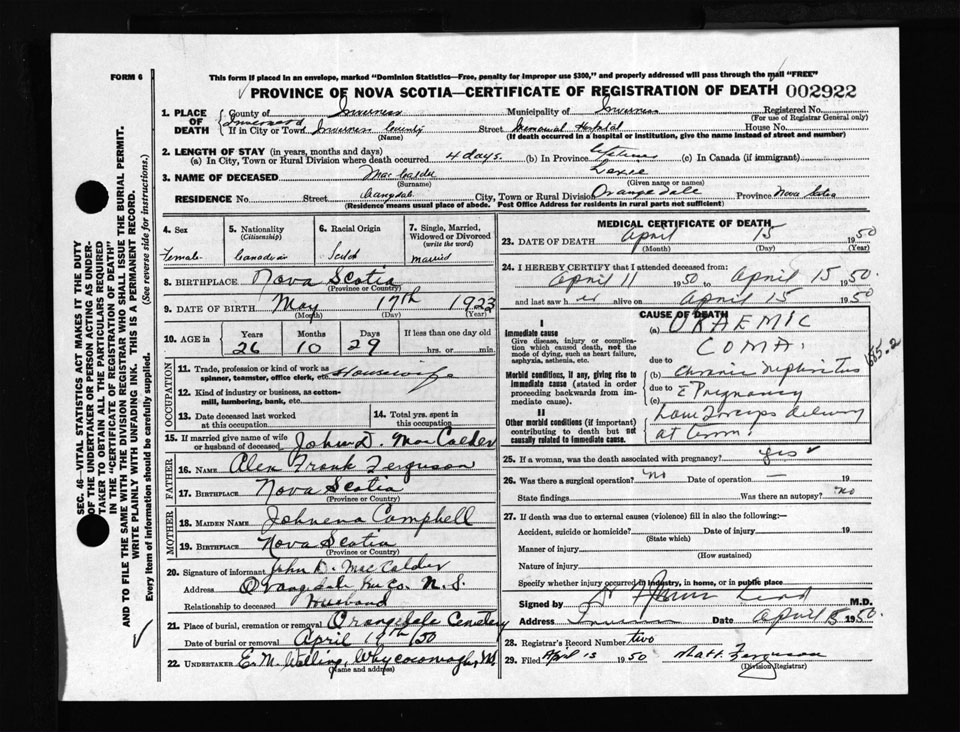 FORM 6
This form if placed in an envelope, marked "Dominion Statistics—Free, penalty for improper use $300," and properly addressed will pass through the mail "FREE"
PROVINCE OF NOVA SCOTIA—CERTIFICATE OF REGISTRATION OF DEATH 002922
1. PLACE OF DEATH County of Inverness Municipality of Inverness Registered No.
(For use of Registrar General only)
If in City or Town Inverness County Street Memorial Hospital House No.
(Name) (If death occurred in a hospital or institution, give the name instead of street and number)
2. LENGTH OF STAY (in years, months and days)
(a) In City, Town or Rural Division where death occurred 4 days. (b) In Province lifetime (c) In Canada (if immigrant)
3. NAME OF DECEASED MacCalder Lexie
(Surname) (Given name or names)
RESIDENCE No. Street City, Town or Rural Division Orangedale Province Nova Scotia
(Residence means usual place of abode. Post Office Address for residents in rural parts not sufficient)
4. Sex 5. Nationality (Citizenship) 6. Racial Origin 7. Single, Married, Widowed or Divorced (write the word)
Female Canadian Scotch Married
8. BIRTHPLACE Nova Scotia
(Province or Country)
9. DATE OF BIRTH May 17th 1923
(Month) (Day) (Year)
10. AGE in Years Months Days If less than one day old
26 10 29 hrs. or min.
OCCUPATION
11. Trade, profession or kind of work as spinner, teamster, office clerk, etc. Housewife
12. Kind of industry or business, as cotton-mill, lumbering, bank, etc.
13. Date deceased last worked at this occupation
14. Total yrs. spent in this occupation
15. If married give name of wife or husband of deceased John D. MacCalder
FATHER
16. NAME Alex Frank Ferguson
17. BIRTHPLACE Nova Scotia
(Province or Country)
MOTHER
18. MAIDEN NAME Johnena Campbell
19. BIRTHPLACE Nova Scotia
(Province or Country)
20. Signature of informant John D. MacCalder
Address Orangedale Inv Co. N.S.
Relationship to deceased Husband
21. Place of burial, cremation or removal Orangedale Cemetery
Date of burial or removal April 18th/50
22. UNDERTAKER E. M. Whycocomagh, NS
(Name and address)
MEDICAL CERTIFICATE OF DEATH
23. DATE OF DEATH April 15 1950
(Month) (Day) (Year)
24. I HEREBY CERTIFY that I attended deceased from
April 11 1950 to April 15 1950.
and last saw her alive on April 15 1950
CAUSE OF DEATH
I
Immediate cause
Give disease, injury or complication which caused death, not the mode of dying, such as heart failure, asphyxia, asthenia, etc.
(a) URAEMIC
COMA.
due to
Morbid conditions, if any, giving rise to immediate cause (stated in order proceeding backwards from immediate cause).
(b) chronic nephritis
due to
(c) Pregnancy
II
Other morbid conditions (if important) contributing to death but not causally related to immediate cause.
Low Forceps delivery
at term.
25. If a woman, was the death associated with pregnancy? yes
26. Was there a surgical operation? no Date of operation — 19
State findings Was there an autopsy? no
27. If death was due to external causes (violence) fill in also the following:—
Accident, suicide or homicide? Date of injury 19
(State which)
Manner of injury
(How sustained)
Nature of injury
Specify whether injury occurred in industry, in home, or in public place
Signed by M.D.
Address Inverness Date April 15 1950
28. Registrar's Record Number two
29. Filed April 15 1950 Matt. Ferguson
(Division Registrar)
SEC. 46—VITAL STATISTICS ACT MAKES IT THE DUTY
OF THE UNDERTAKER OR PERSON ACTING AS UNDERTAKER TO OBTAIN ALL THE PARTICULARS REQUIRED
IN THE "CERTIFICATE OF REGISTRATION OF DEATH"
AND TO FILE THE SAME WITH THE DIVISION REGISTRAR WHO SHALL ISSUE THE BURIAL PERMIT.
WRITE PLAINLY WITH UNFADING INK. THIS IS A PERMANENT RECORD.
Every item of information should be carefully supplied. (See reverse side for instructions.)